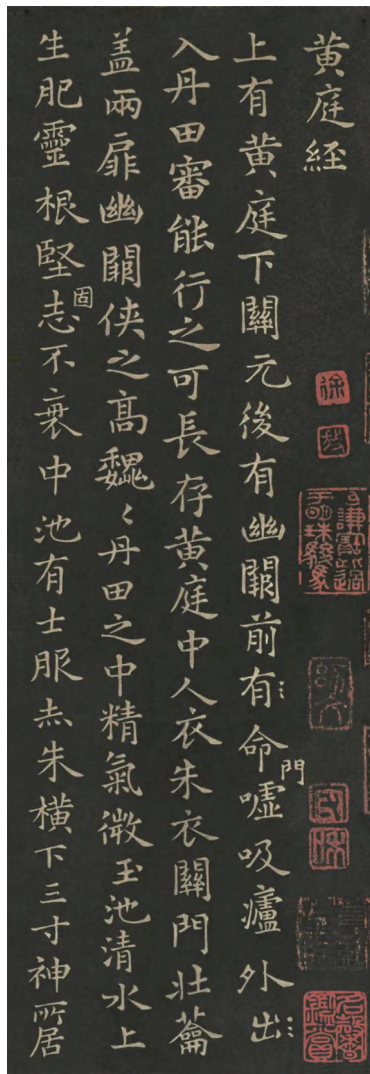 黃庭經
上有黃庭下關元後有幽闕前有命門噓吸廬外出
入丹田審能行之可長存黃庭中人衣朱衣關門壯蘥
蓋兩扉幽闕俠之高巍〻丹田之中精氣微玉池清水上
生肥靈根堅固志不衰中池有士服赤朱橫下三寸神所居